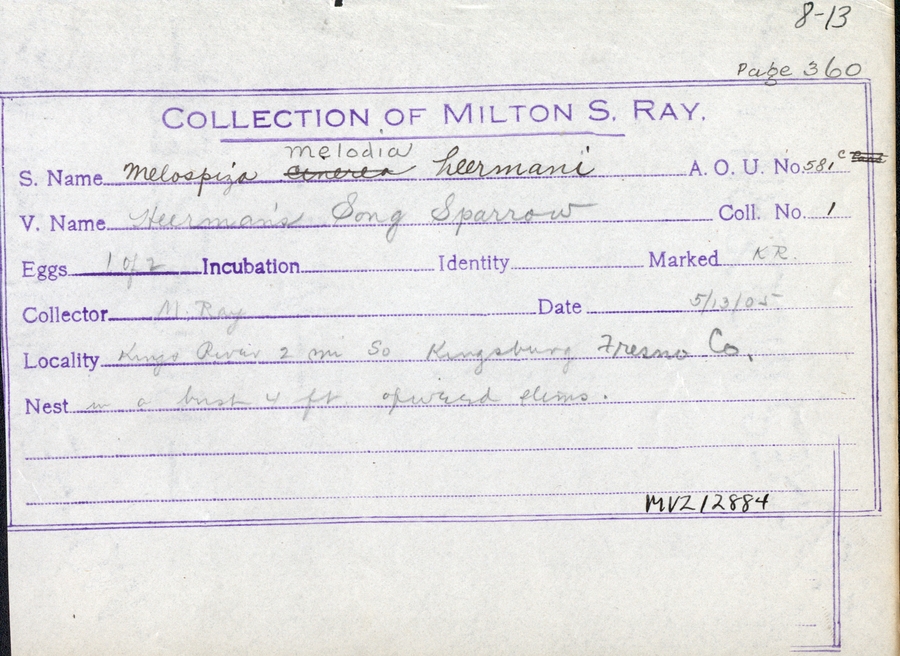 8-13
Page 360
COLLECTION OF MILTON S. RAY.
melodia
S. Name Melospiza cinerea heermani A. O. U. No. 581c
V. Name Heerman's Song Sparrow Coll. No. 1
Eggs 1 of 2 Incubation Identity Marked KR.
Collector M. Ray Date 5/13/05
Locality Kings River 2 mi So Kingsburg Fresno Co.
Nest in a bush 4 ft of weed stems.
MVZ 12884